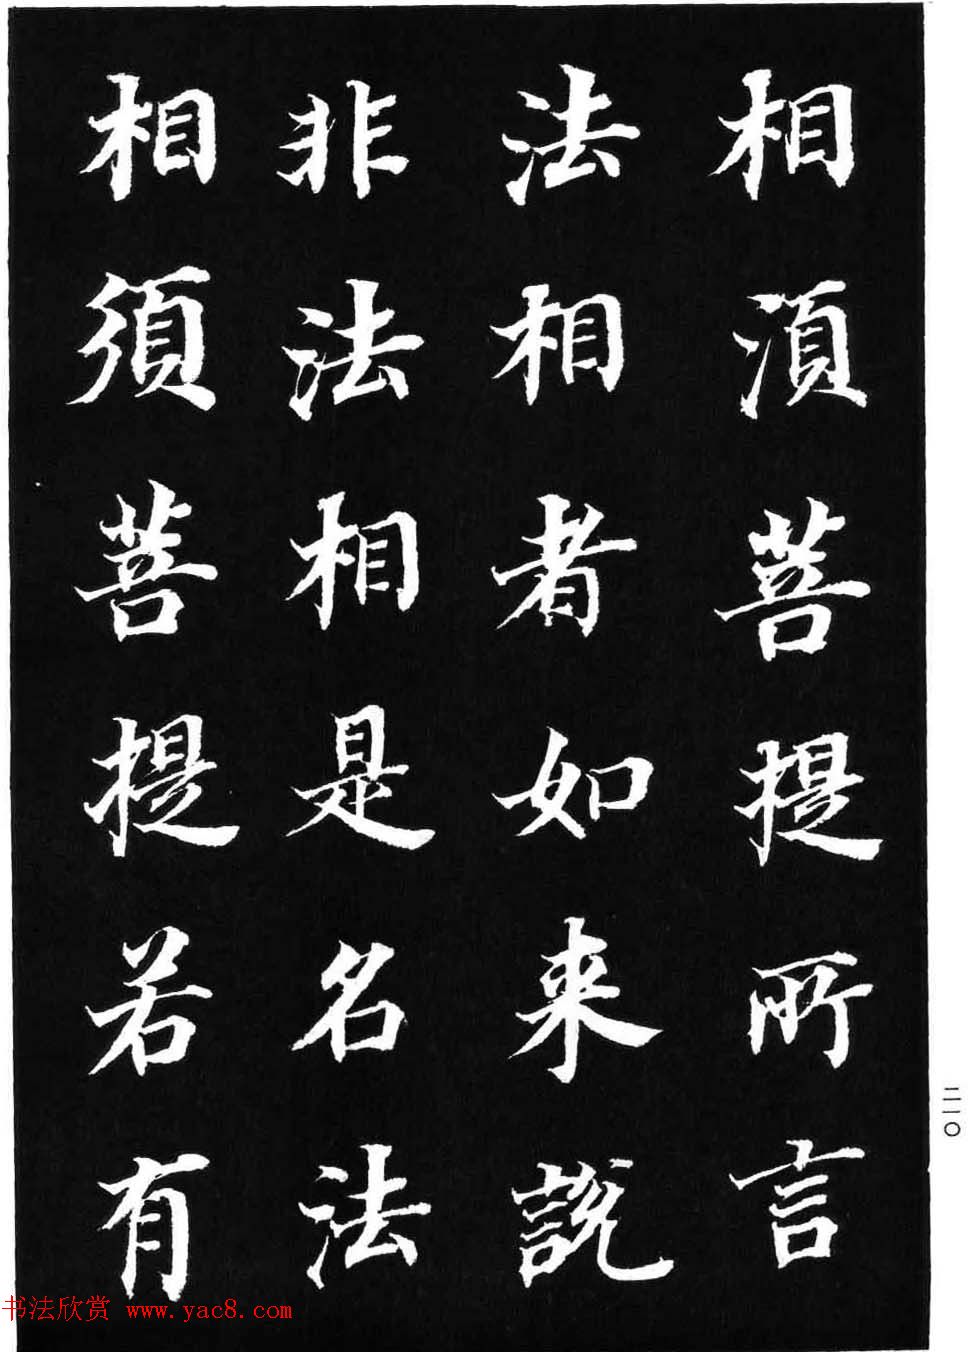 相湏菩提所言
法相者如来説
非法相是名法
相須菩提若有
二一〇
书法欣赏 www.yac8.com